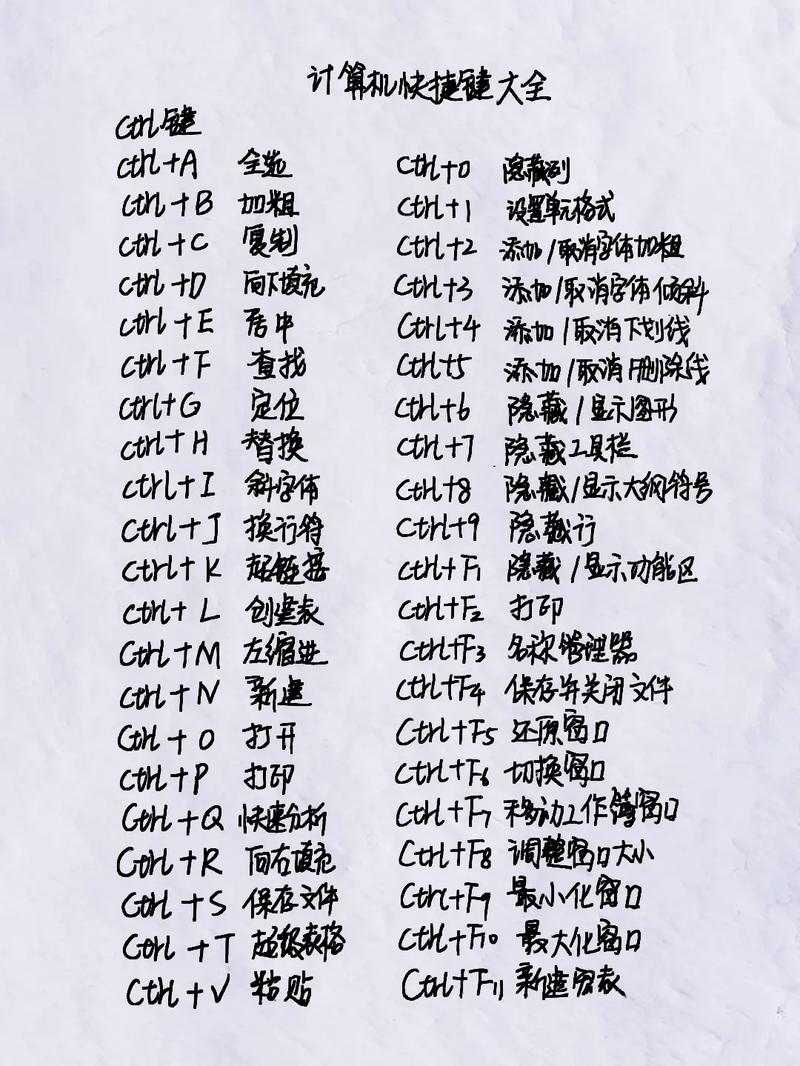 计算机快捷键大全
Ctrl键
Ctrl+A 全选
Ctrl+B 加粗
Ctrl+C 复制
Ctrl+D 向下填充
Ctrl+E 居中
Ctrl+F 查找
Ctrl+G 定位
Ctrl+H 替换
Ctrl+I 斜字体
Ctrl+J 换行符
Ctrl+K 超链接
Ctrl+L 创建表
Ctrl+M 左缩进
Ctrl+N 新建
Ctrl+O 打开
Ctrl+P 打印
Ctrl+Q 快速分析
Ctrl+R 向右填充
Ctrl+S 保存文件
Ctrl+T 超级表格
Ctrl+V 粘贴
Ctrl+0 隐藏列
Ctrl+1 设置单元格式
Ctrl+2 添加/取消字体加粗
Ctrl+3 添加/取消字体倾斜
Ctrl+4 添加/取消下划线
Ctrl+5 添加/取消删除线
Ctrl+6 隐藏/显示图形
Ctrl+7 隐藏工具栏
Ctrl+8 隐藏/显示大纲符号
Ctrl+9 隐藏行
Ctrl+F1 隐藏/显示功能区
Ctrl+F2 打印
Ctrl+F3 名称管理器
Ctrl+F4 保存并关闭文件
Ctrl+F5 还原窗口
Ctrl+F6 切换窗口
Ctrl+F7 移动工作簿窗口
Ctrl+F8 调整窗口大小
Ctrl+F9 最小化窗口
Ctrl+F10 最大化窗口
Ctrl+F11 新建宏表